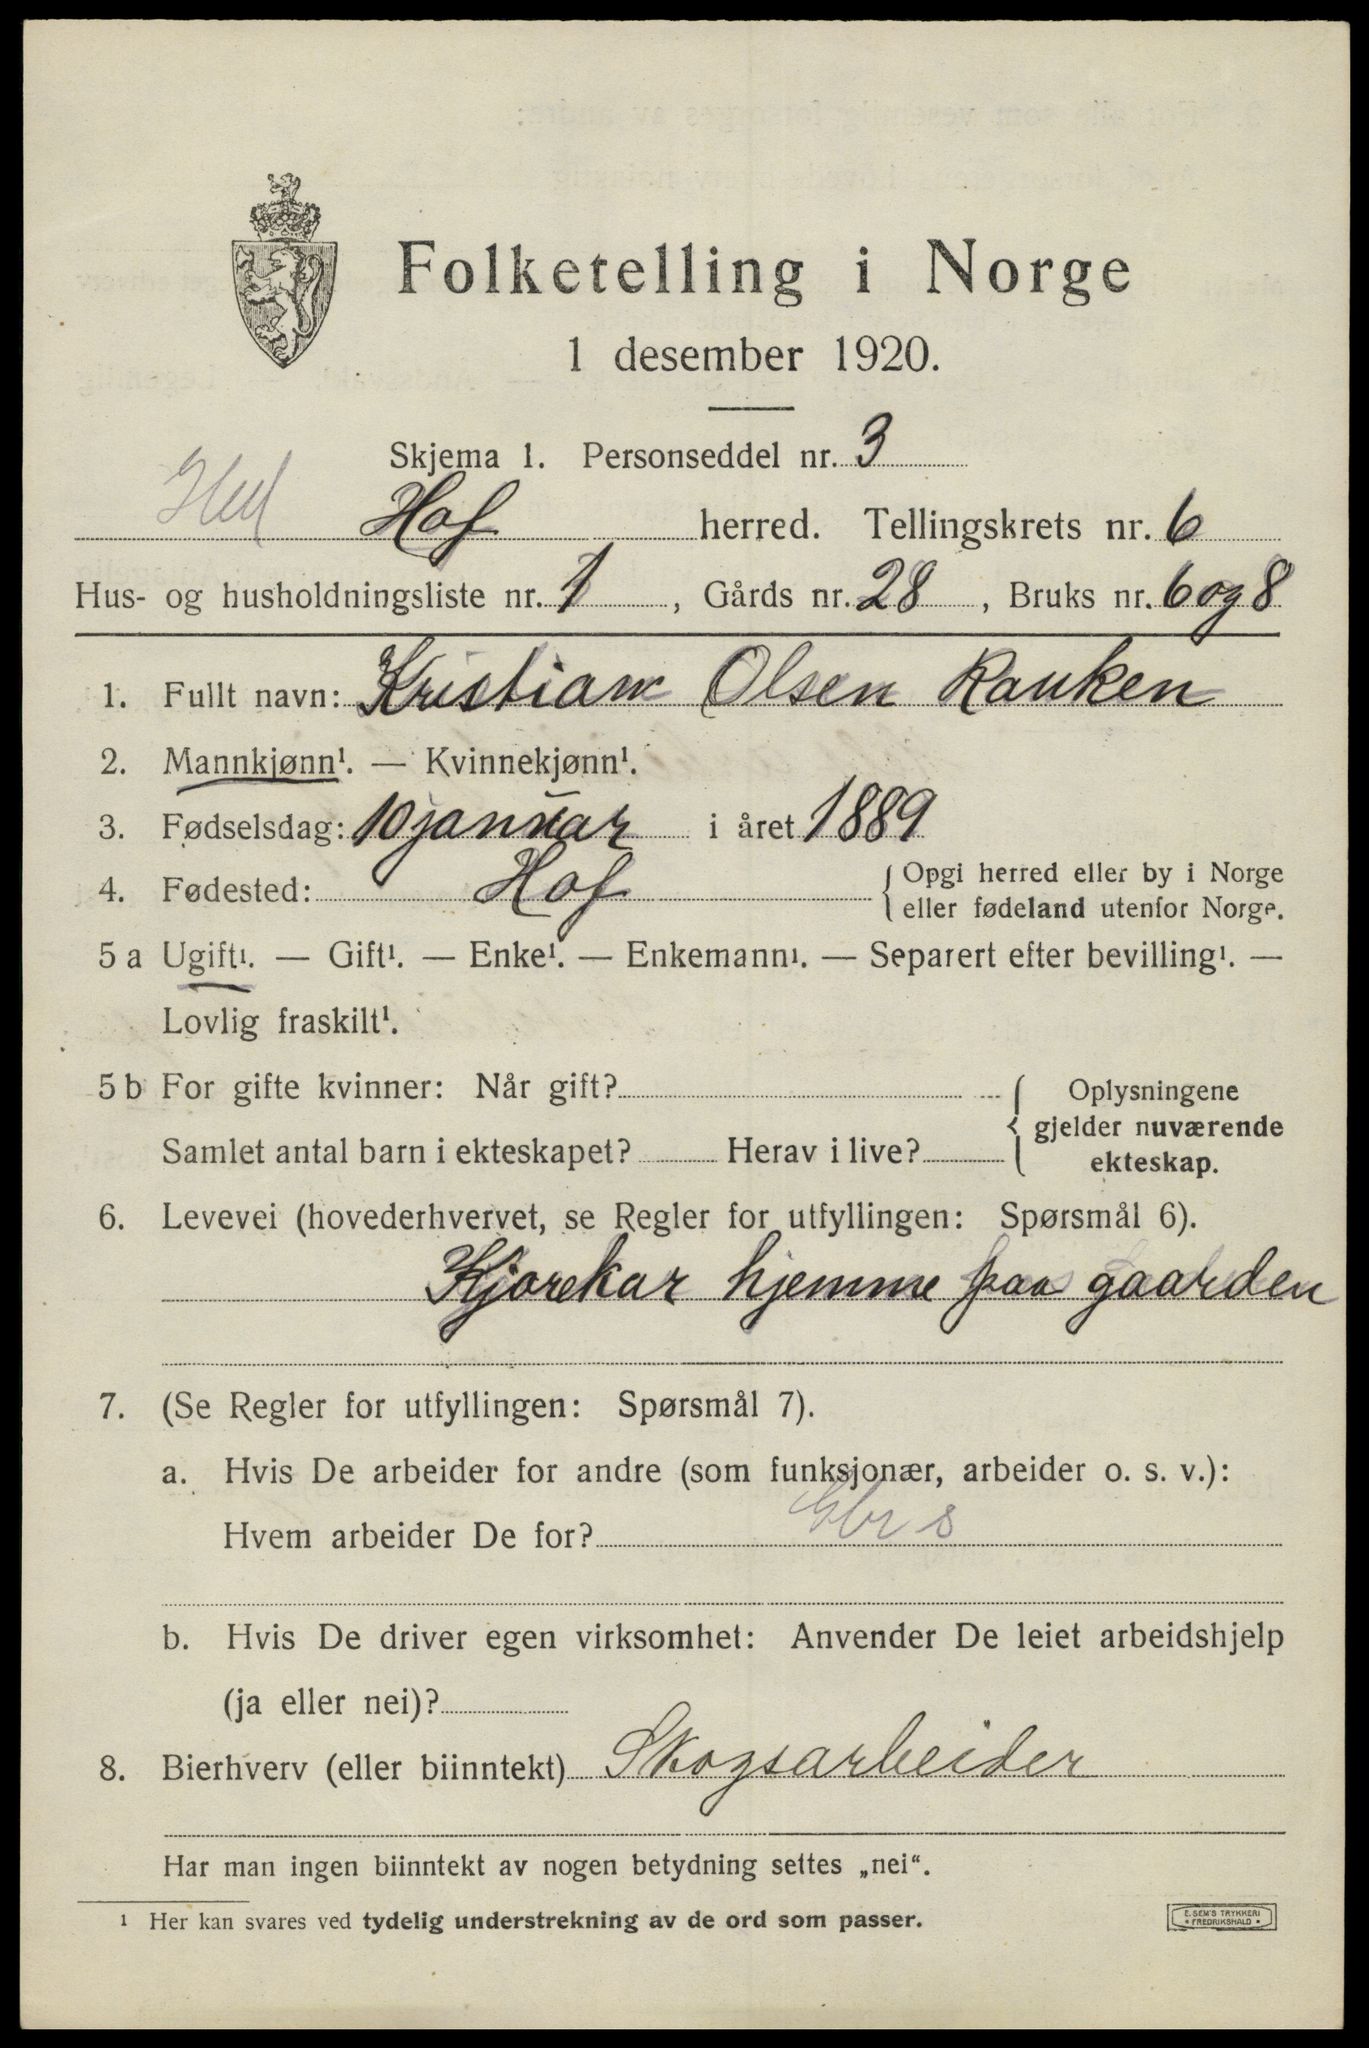 Folketelling i Norge
1 desember 1920.
Skjema 1. Personseddel nr. 3
Hed Hof herred. Tellingskrets nr. 6
Hus- og husholdningsliste nr. 1, Gårds nr. 28, Bruks nr. 6 og 8
1. Fullt navn: Kristian Olsen Rauken
2. Mannkjønn¹. — Kvinnekjønn¹.
3. Fødselsdag: 10 januar i året 1889
4. Fødested: Hof { Opgi herred eller by i Norge
eller fødeland utenfor Norge.
5 a Ugift¹. — Gift¹. — Enke¹. — Enkemann¹. — Separert efter bevilling¹. —
Lovlig fraskilt¹.
5 b For gifte kvinner: Når gift?
Samlet antal barn i ekteskapet? Herav i live?
{ Oplysningene
gjelder nuværende
ekteskap.
6. Levevei (hovederhvervet, se Regler for utfyllingen: Spørsmål 6).
Kjørekar hjemme paa gaarden
7. (Se Regler for utfyllingen: Spørsmål 7).
a. Hvis De arbeider for andre (som funksjonær, arbeider o. s. v.):
Hvem arbeider De for?
b. Hvis De driver egen virksomhet: Anvender De leiet arbeidshjelp
(ja eller nei)?
8. Bierhverv (eller biinntekt) Skogsarbeider
Har man ingen biinntekt av nogen betydning settes „nei“.
¹ Her kan svares ved tydelig understrekning av de ord som passer.
E. SEM'S TRYKKERI
* FREDRIKSHALD *